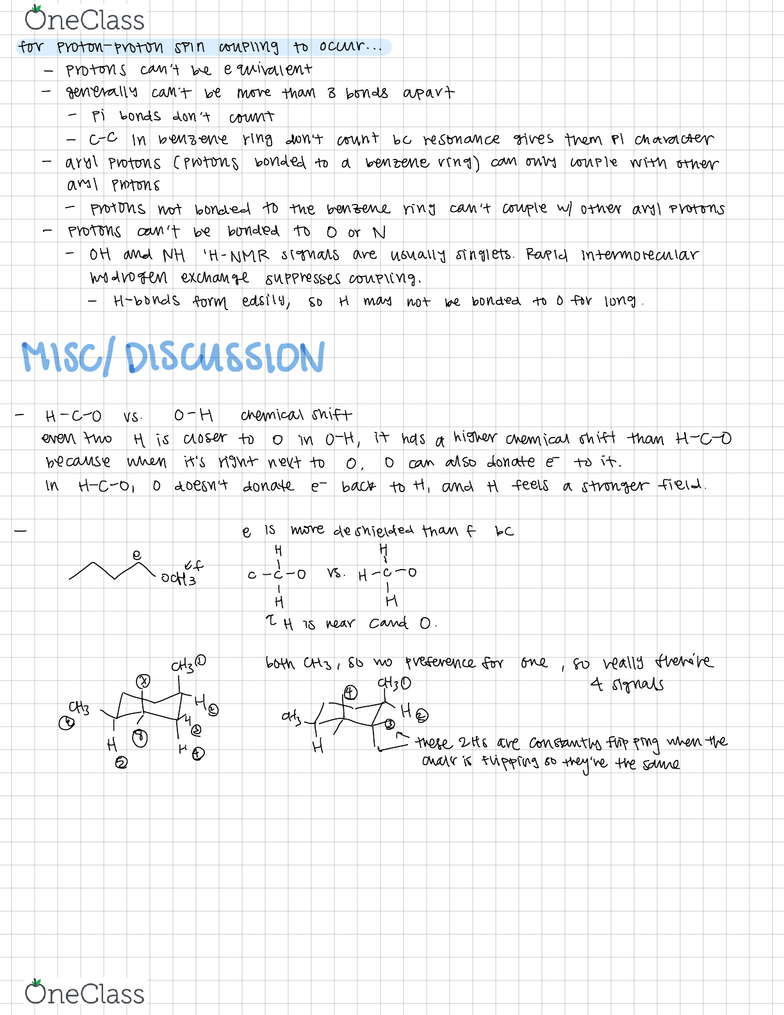 OneClass
for proton-proton spin coupling to occur...
- protons can't be equivalent
- generally can't be more than 3 bonds apart
- Pi bonds don't count
- C-C in benzene ring don't count bc resonance gives them Pi character
- aryl protons (protons bonded to a benzene ring) can only couple with other
aryl protons
- protons not bonded to the benzene ring can't couple w/ other aryl protons
- protons can't be bonded to O or N
- OH and NH 'H-NMR signals are usually singlets. Rapid intermolecular
hydrogen exchange suppresses coupling.
- H-bonds form easily, so H may not be bonded to O for long.
MISC/DISCUSSION
- H-C-O vs. O-H chemical shift
even two H is closer to O in O-H, it has a higher chemical shift than H-C-O
because when it's right next to O, O can also donate e⁻ to it.
In H-C-O, O doesn't donate e⁻ back to H, and H feels a stronger field.
- e is more deshielded than f bc
e
f
OCH3
H H
C-C-O vs. H-C-O
H H
H is near C and O.
both CH3, so no preference for one, so really there're
4 signals
CH3 ①
H ②
CH3
H
H
CH3 ①
④
H ②
③
CH3
H
these 2Hs are constantly flipping when the
chair is flipping so they're the same
OneClass